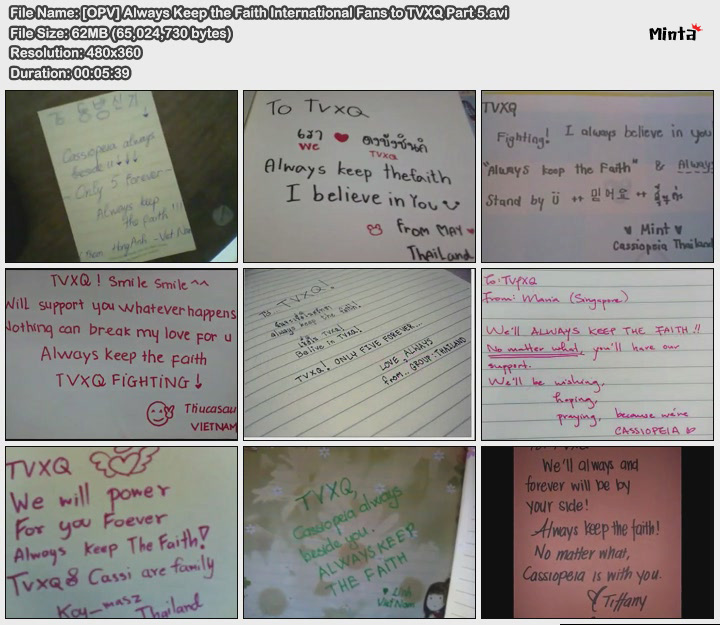 File Name: [OPV] Always Keep the Faith International Fans to TVXQ Part 5.avi
File Size: 62MB (65,024,730 bytes)
Resolution: 480x360
Duration: 00:05:39
Minta
동방신기
Cassiopeia always
beside u ↓↓↓
- Only 5 Forever -
Always keep
the faith !!!
HongAnh - Viet Nam
To TVXQ
เรา ♥
We TVXQ
Always keep thefaith
I believe in You
From MAY ♥
Thailand
TVXQ
Fighting! I always believe in you
"Always keep the Faith" & Always
Stand by ü ++ 믿어요 ++
♥ Mint ♥
Cassiopeia Thailand
TVXQ ! Smile Smile ^^
Will support you whatever happens
Nothing can break my love for u
Always Keep the faith
TVXQ FiGHTiNG !
Thucasau
VIETNAM
To TVXQ!
always keep the faith!
TVXQ!
Belive in TVXQ!
TVXQ! ONLY FIVE FOREVER...
LOVE ALWAYS
from... GROUP : THAILAND
To: TVXQ
From: Maria (Singapore)
We'll ALWAYS KEEP THE FAITH!!
No matter what, you'll have our
support.
We'll be wishing,
hoping,
praying, because we're
CASSIOPEIA
TVXQ
We will power
For you Foever
Always Keep The Faith!
TVXQ & Cassi are family
Koy_masz
Thailand
TVXQ,
Cassiopeia always
beside you.
ALWAYS KEEP
THE FAITH
♥ Linh
Viet Nam
We'll always and
forever will be by
your side!
Always keep the faith!
No matter what,
Cassiopeia is with you.
Tiffany